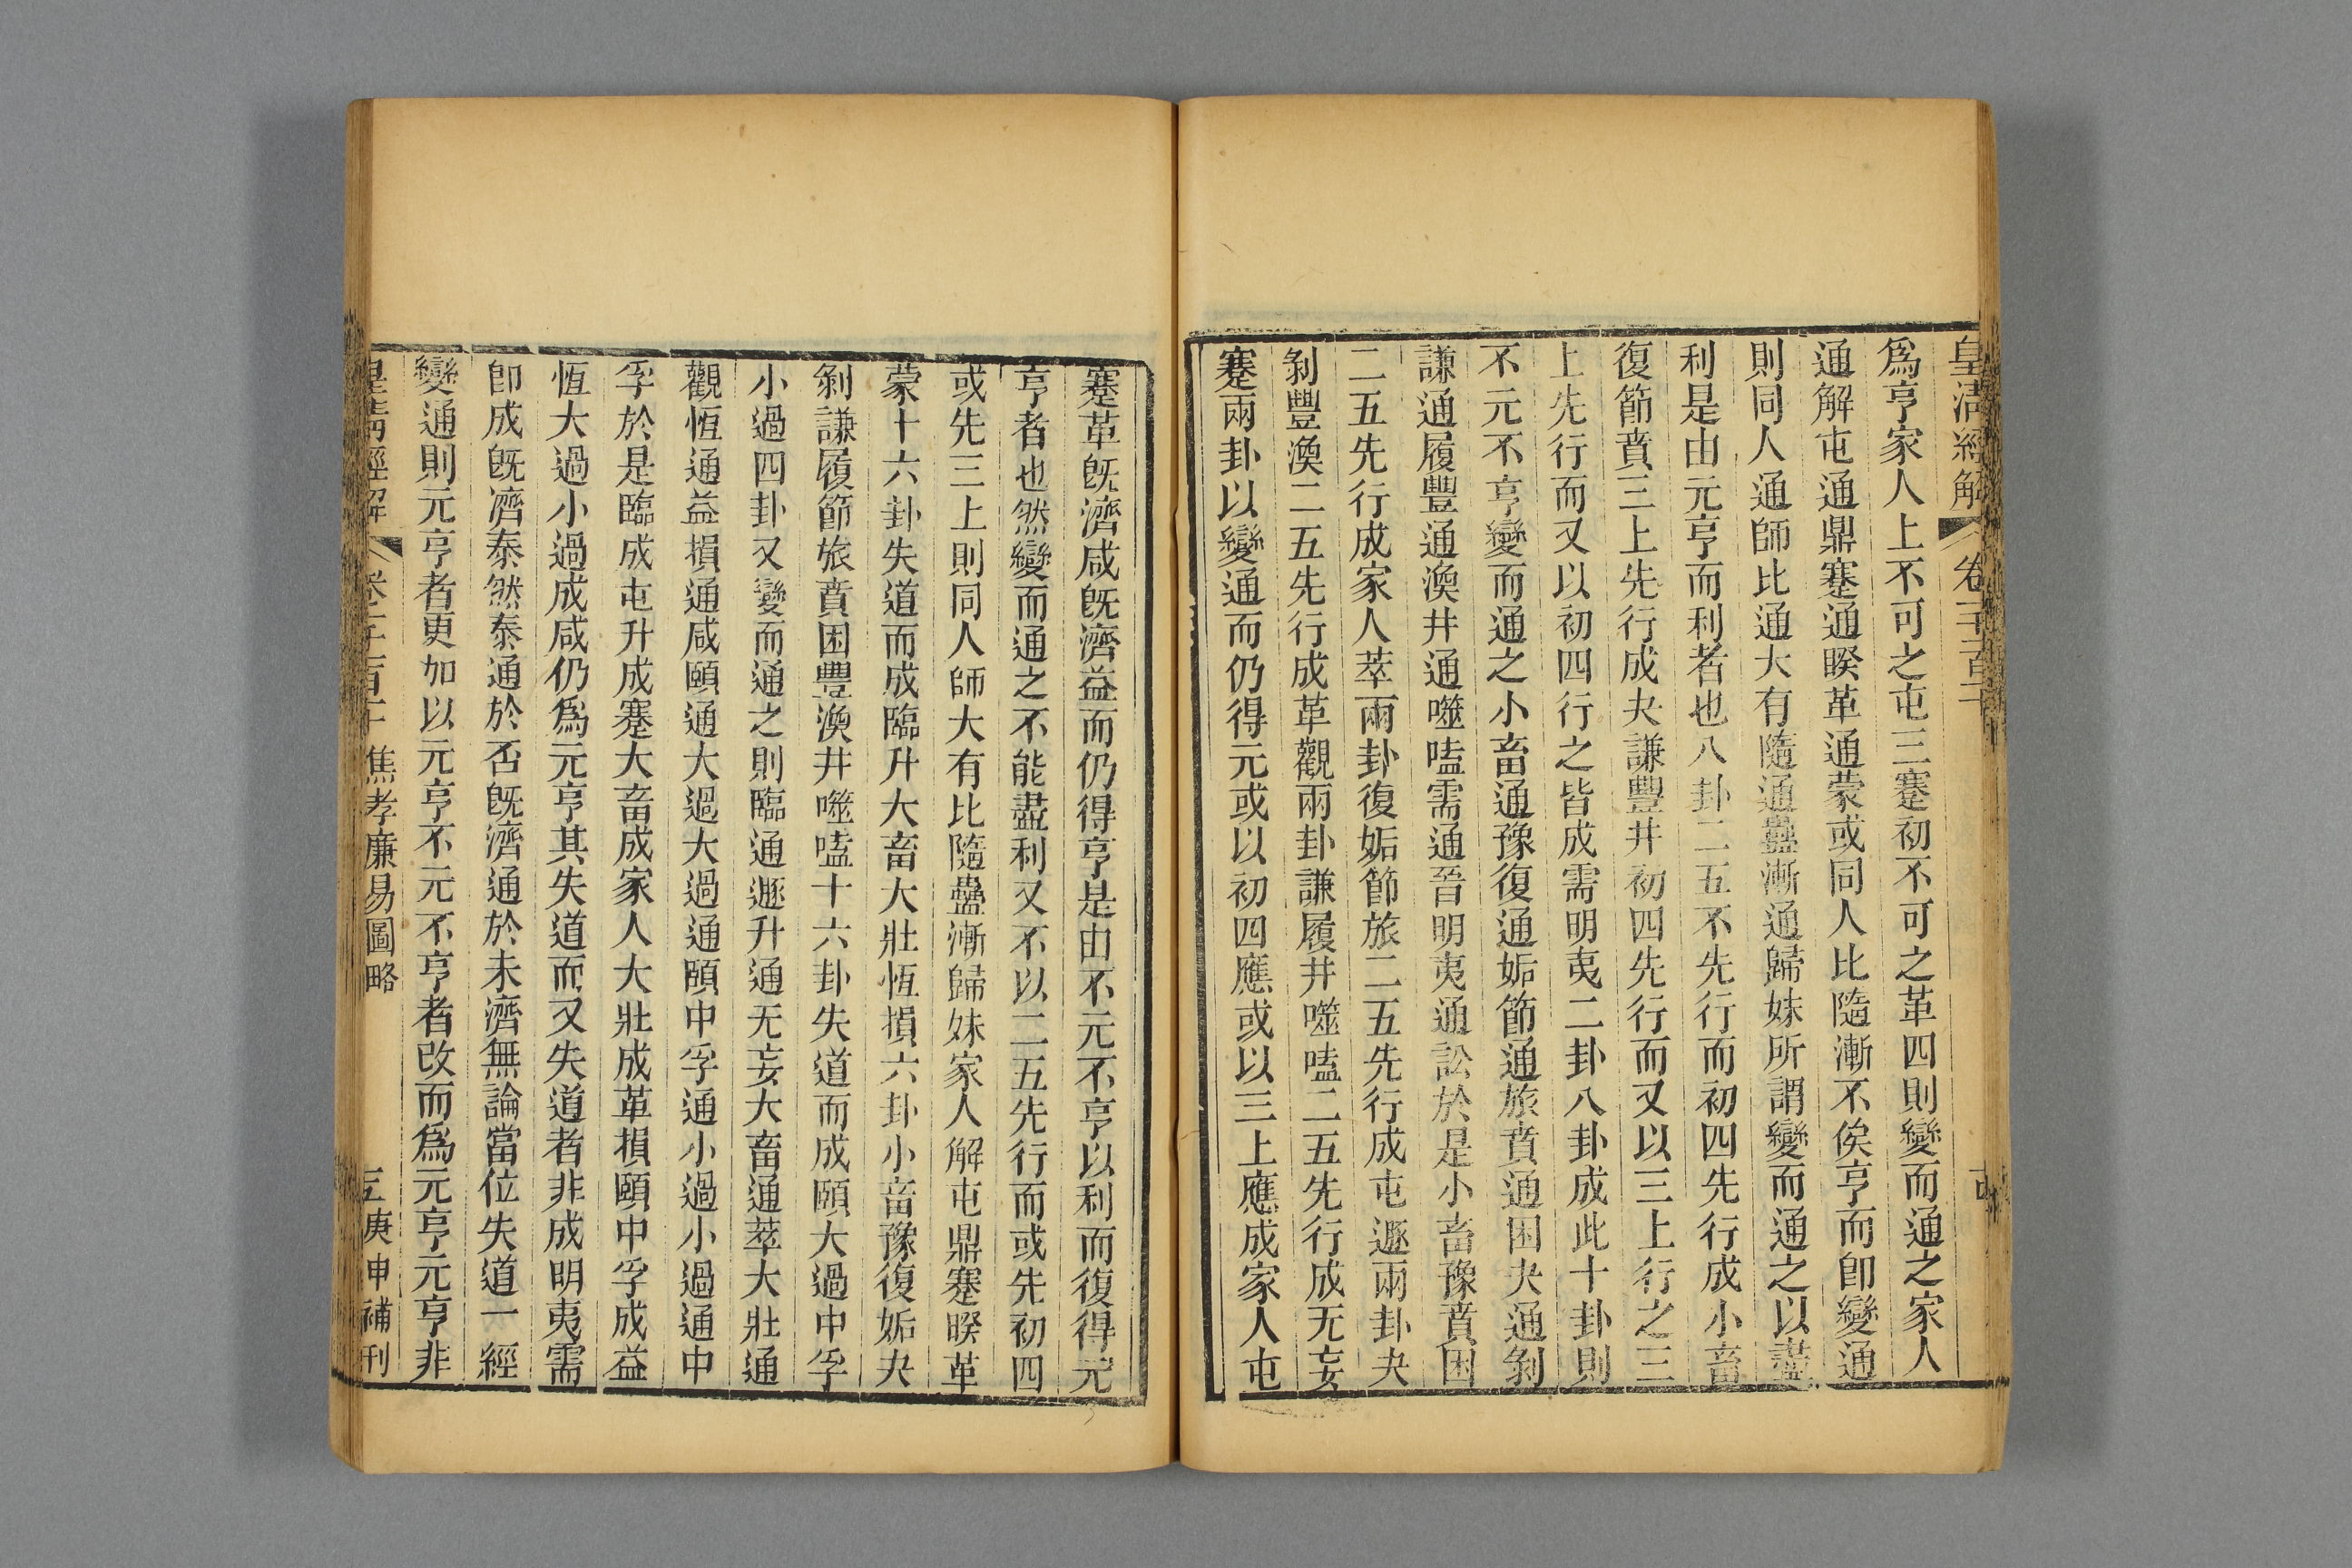 皇清經解 卷一千一百十
爲亨家人上不可之屯三蹇初不可之革四則變而通之家人
通解屯通鼎蹇通睽革通蒙或同人比隨漸不俟亨而卽變通
則同人通師比通大有隨通蠱漸通歸妹所謂變而通之以盡
利是由元亨而利者也八卦二五不先行而初四先行成小畜
復節賁三上先行成夬謙豐井初四先行而又以三上行之三
上先行而又以初四行之皆成需明夷二卦八卦成此十卦則
不元不亨變而通之小畜通豫復通姤節通旅賁通困夬通剝
謙通履豐通渙井通噬嗑需通晉明夷通訟於是小畜豫賁困
二五先行成家人萃兩卦復姤節旅二五先行成屯遯兩卦夬
剝豐渙二五先行成革觀兩卦謙履井噬嗑二五先行成无妄
蹇兩卦以變通而仍得元或以初四應或以三上應成家人屯
蹇革旣濟咸旣濟益而仍得亨是由不元不亨以利而復得元
亨者也然變而通之不能盡利又不以二五先行而或先初四
或先三上則同人師大有比隨蠱漸歸妹家人解屯鼎蹇睽革
蒙十六卦失道而成臨升大畜大壯恆損六卦小畜豫復姤夬
剝謙履節旅賁困豐渙井噬嗑十六卦失道而成頤大過中孚
小過四卦又變而通之則臨通遯升通无妄大畜通萃大壯通
觀恆通益損通咸頤通大過大過通頤中孚通小過小過通中
孚於是臨成屯升成蹇大畜成家人大壯成革損頤中孚成益
恆大過小過成咸仍爲元亨其失道而又失道者非成明夷需
卽成旣濟泰然泰通於否旣濟通於未濟無論當位失道一經
變通則元亨者更加以元亨不元不亨者改而爲元亨元亨非
皇清經解 卷一千一百十 焦孝廉易圖略 庚申補刊